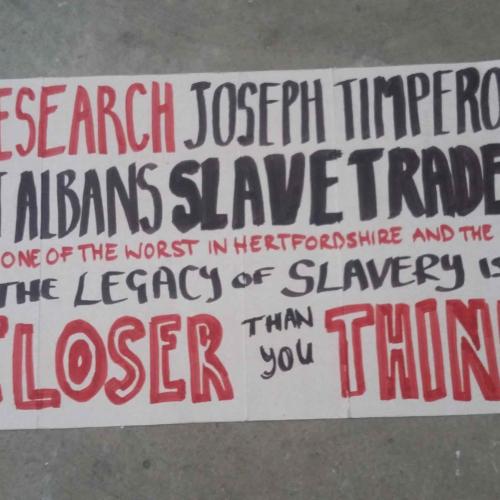 ESEARCH JOSEPH TIMPERO
T ALBANS SLAVE TRADE
ONE OF THE WORST IN HERTFORDSHIRE AND THE
THE LEGACY OF SLAVERY IS
CLOSER THAN YOU THIN